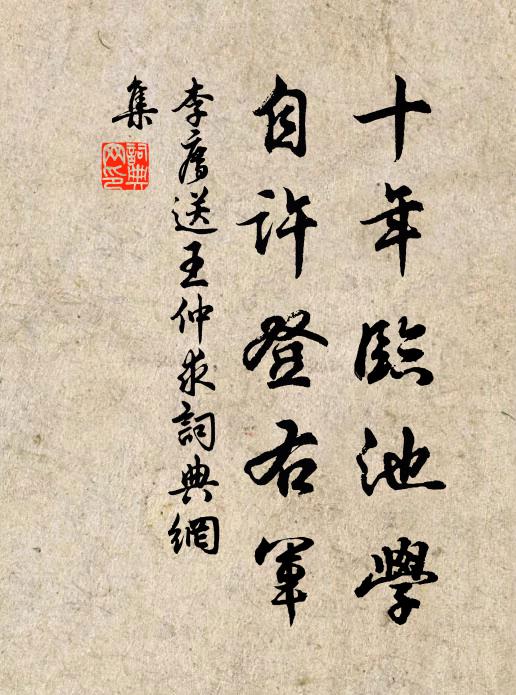 十年臨池學
自許登右軍
李廌送王仲求詞典網
集
詞典
网印